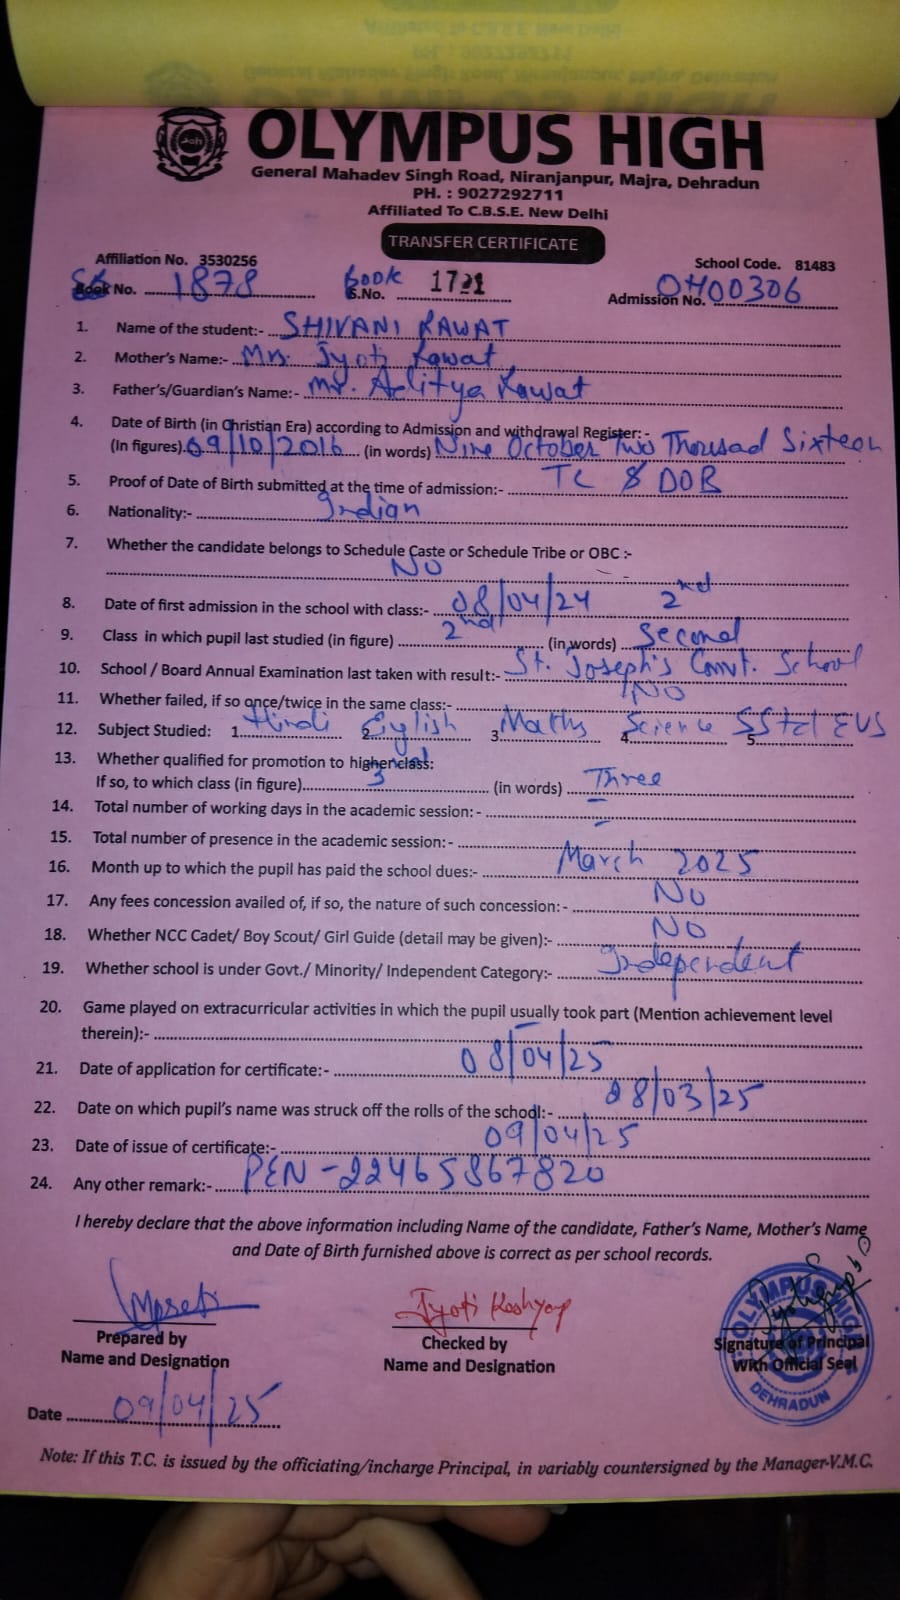 OLYMPUS HIGH
General Mahadev Singh Road, Niranjanpur, Majra, Dehradun
PH. : 9027292711
Affiliated To C.B.S.E. New Delhi
TRANSFER CERTIFICATE
Affiliation No. 3530256 School Code. 81483
Book No. 1878 Book S.No. 1721 Admission No. OH00306
1. Name of the student:- SHIVANI RAWAT
2. Mother's Name:- Mrs. Jyoti Rawat
3. Father's/Guardian's Name:- Mr. Aditya Rawat
4. Date of Birth (in Christian Era) according to Admission and withdrawal Register: -
(In figures) 09/10/2016 (in words) Nine October Two Thousad Sixteen
5. Proof of Date of Birth submitted at the time of admission:- TC & DOB
6. Nationality:- Indian
7. Whether the candidate belongs to Schedule Caste or Schedule Tribe or OBC :-
No
8. Date of first admission in the school with class:- 08/04/24 2nd
9. Class in which pupil last studied (in figure) 2nd (in words) Second
10. School / Board Annual Examination last taken with result:- St. Joseph's Convt. School
11. Whether failed, if so once/twice in the same class:- No
12. Subject Studied: 1 Hindi 2 English 3 Maths 4 Science 5 SStd EVS
13. Whether qualified for promotion to higher class:
If so, to which class (in figure) 3 (in words) Three
14. Total number of working days in the academic session: - –
15. Total number of presence in the academic session: - –
16. Month up to which the pupil has paid the school dues:- March 2025
17. Any fees concession availed of, if so, the nature of such concession:- No
18. Whether NCC Cadet/ Boy Scout/ Girl Guide (detail may be given):- No
19. Whether school is under Govt./ Minority/ Independent Category:- Independent
20. Game played on extracurricular activities in which the pupil usually took part (Mention achievement level
therein):- –
21. Date of application for certificate:- 08/04/25
22. Date on which pupil's name was struck off the rolls of the school:- 28/03/25
23. Date of issue of certificate:- 09/04/25
24. Any other remark:- PEN - 22465867820
I hereby declare that the above information including Name of the candidate, Father's Name, Mother's Name
and Date of Birth furnished above is correct as per school records.
Jyoti Kashyap
OLYMPUS HIGH
DEHRADUN
Prepared by Checked by Signature of Principal
Name and Designation Name and Designation With Official Seal
Date 09/04/25
Note: If this T.C. is issued by the officiating/incharge Principal, in variably countersigned by the Manager-V.M.C.